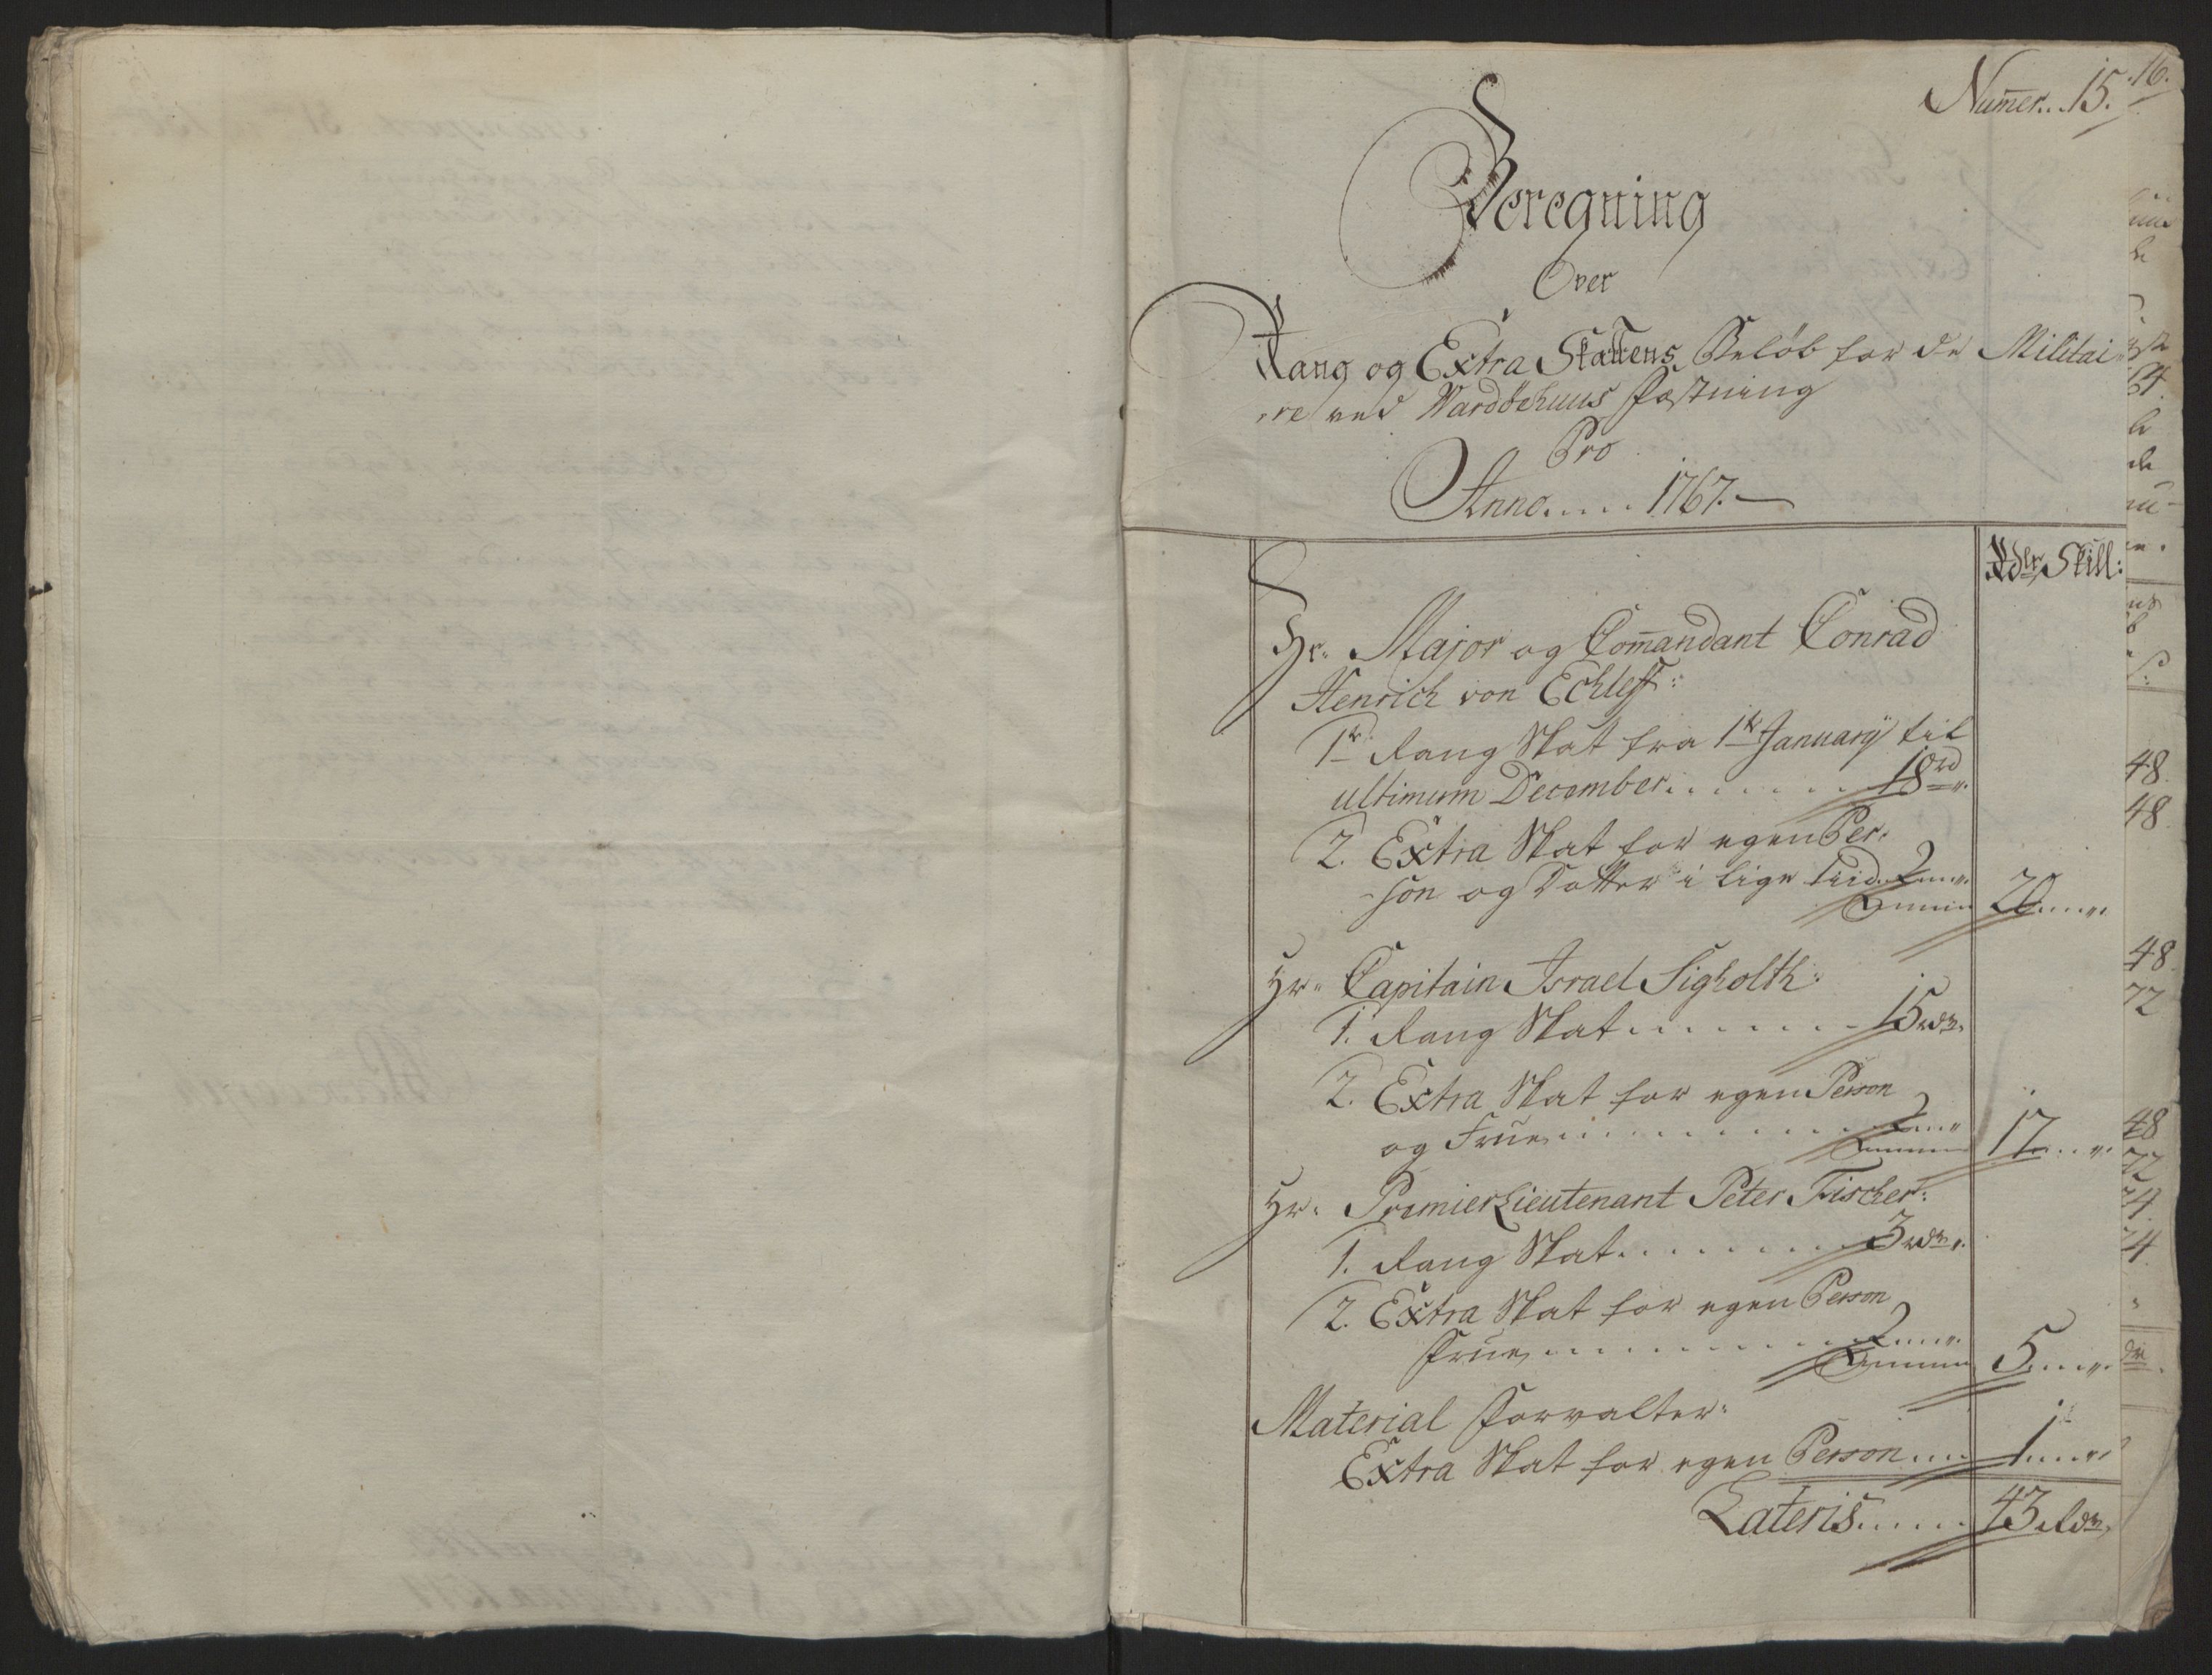 Num̄er. . . 15.
16.
Beregning
Over
Rang og Extra Skattens Beløb for de Militai
re ved Wardöehuus Fæstning
Pro
Anno. . . . . 1767. —
Rdlr Skill:
Hr. Major og Com̄andant Conrad
Henrich von Echleff:
1te Rang Skat fra 1te January til
ultimum December. . . . . . . 18rd „
2. Extra Skat for egen Per-
son og Datter i lige tiid. 2 „ 20 „
Hr. Capitain Israel Sigholth:
1. Rang Skat. . . . . . . 15rdr „
2. Extra Skat for egen Person
og Frue. . . . . . . . . . 2 „ 17 „
Hr. Premier Lieutenant Peter Fischer:
1. Rang Skat. . . . . . . 3rdr „
2. Extra Skat for egen Person
Frue. . . . . . . . . . 2 „ 5 „
Material Forvalter:
Extra Skat for egen Person. . . . 1 „
Lateris. . . . . 43 Rdr
48
48
48
72
48
72